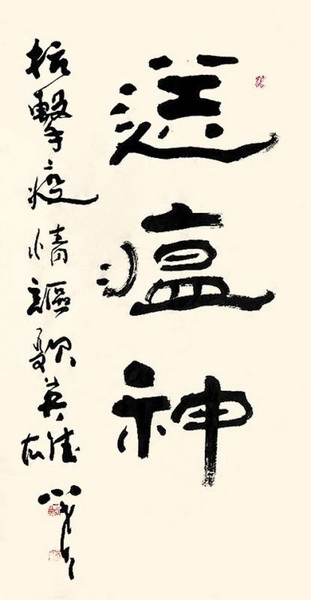 送瘟神
抗擊疫情謳歌英雄